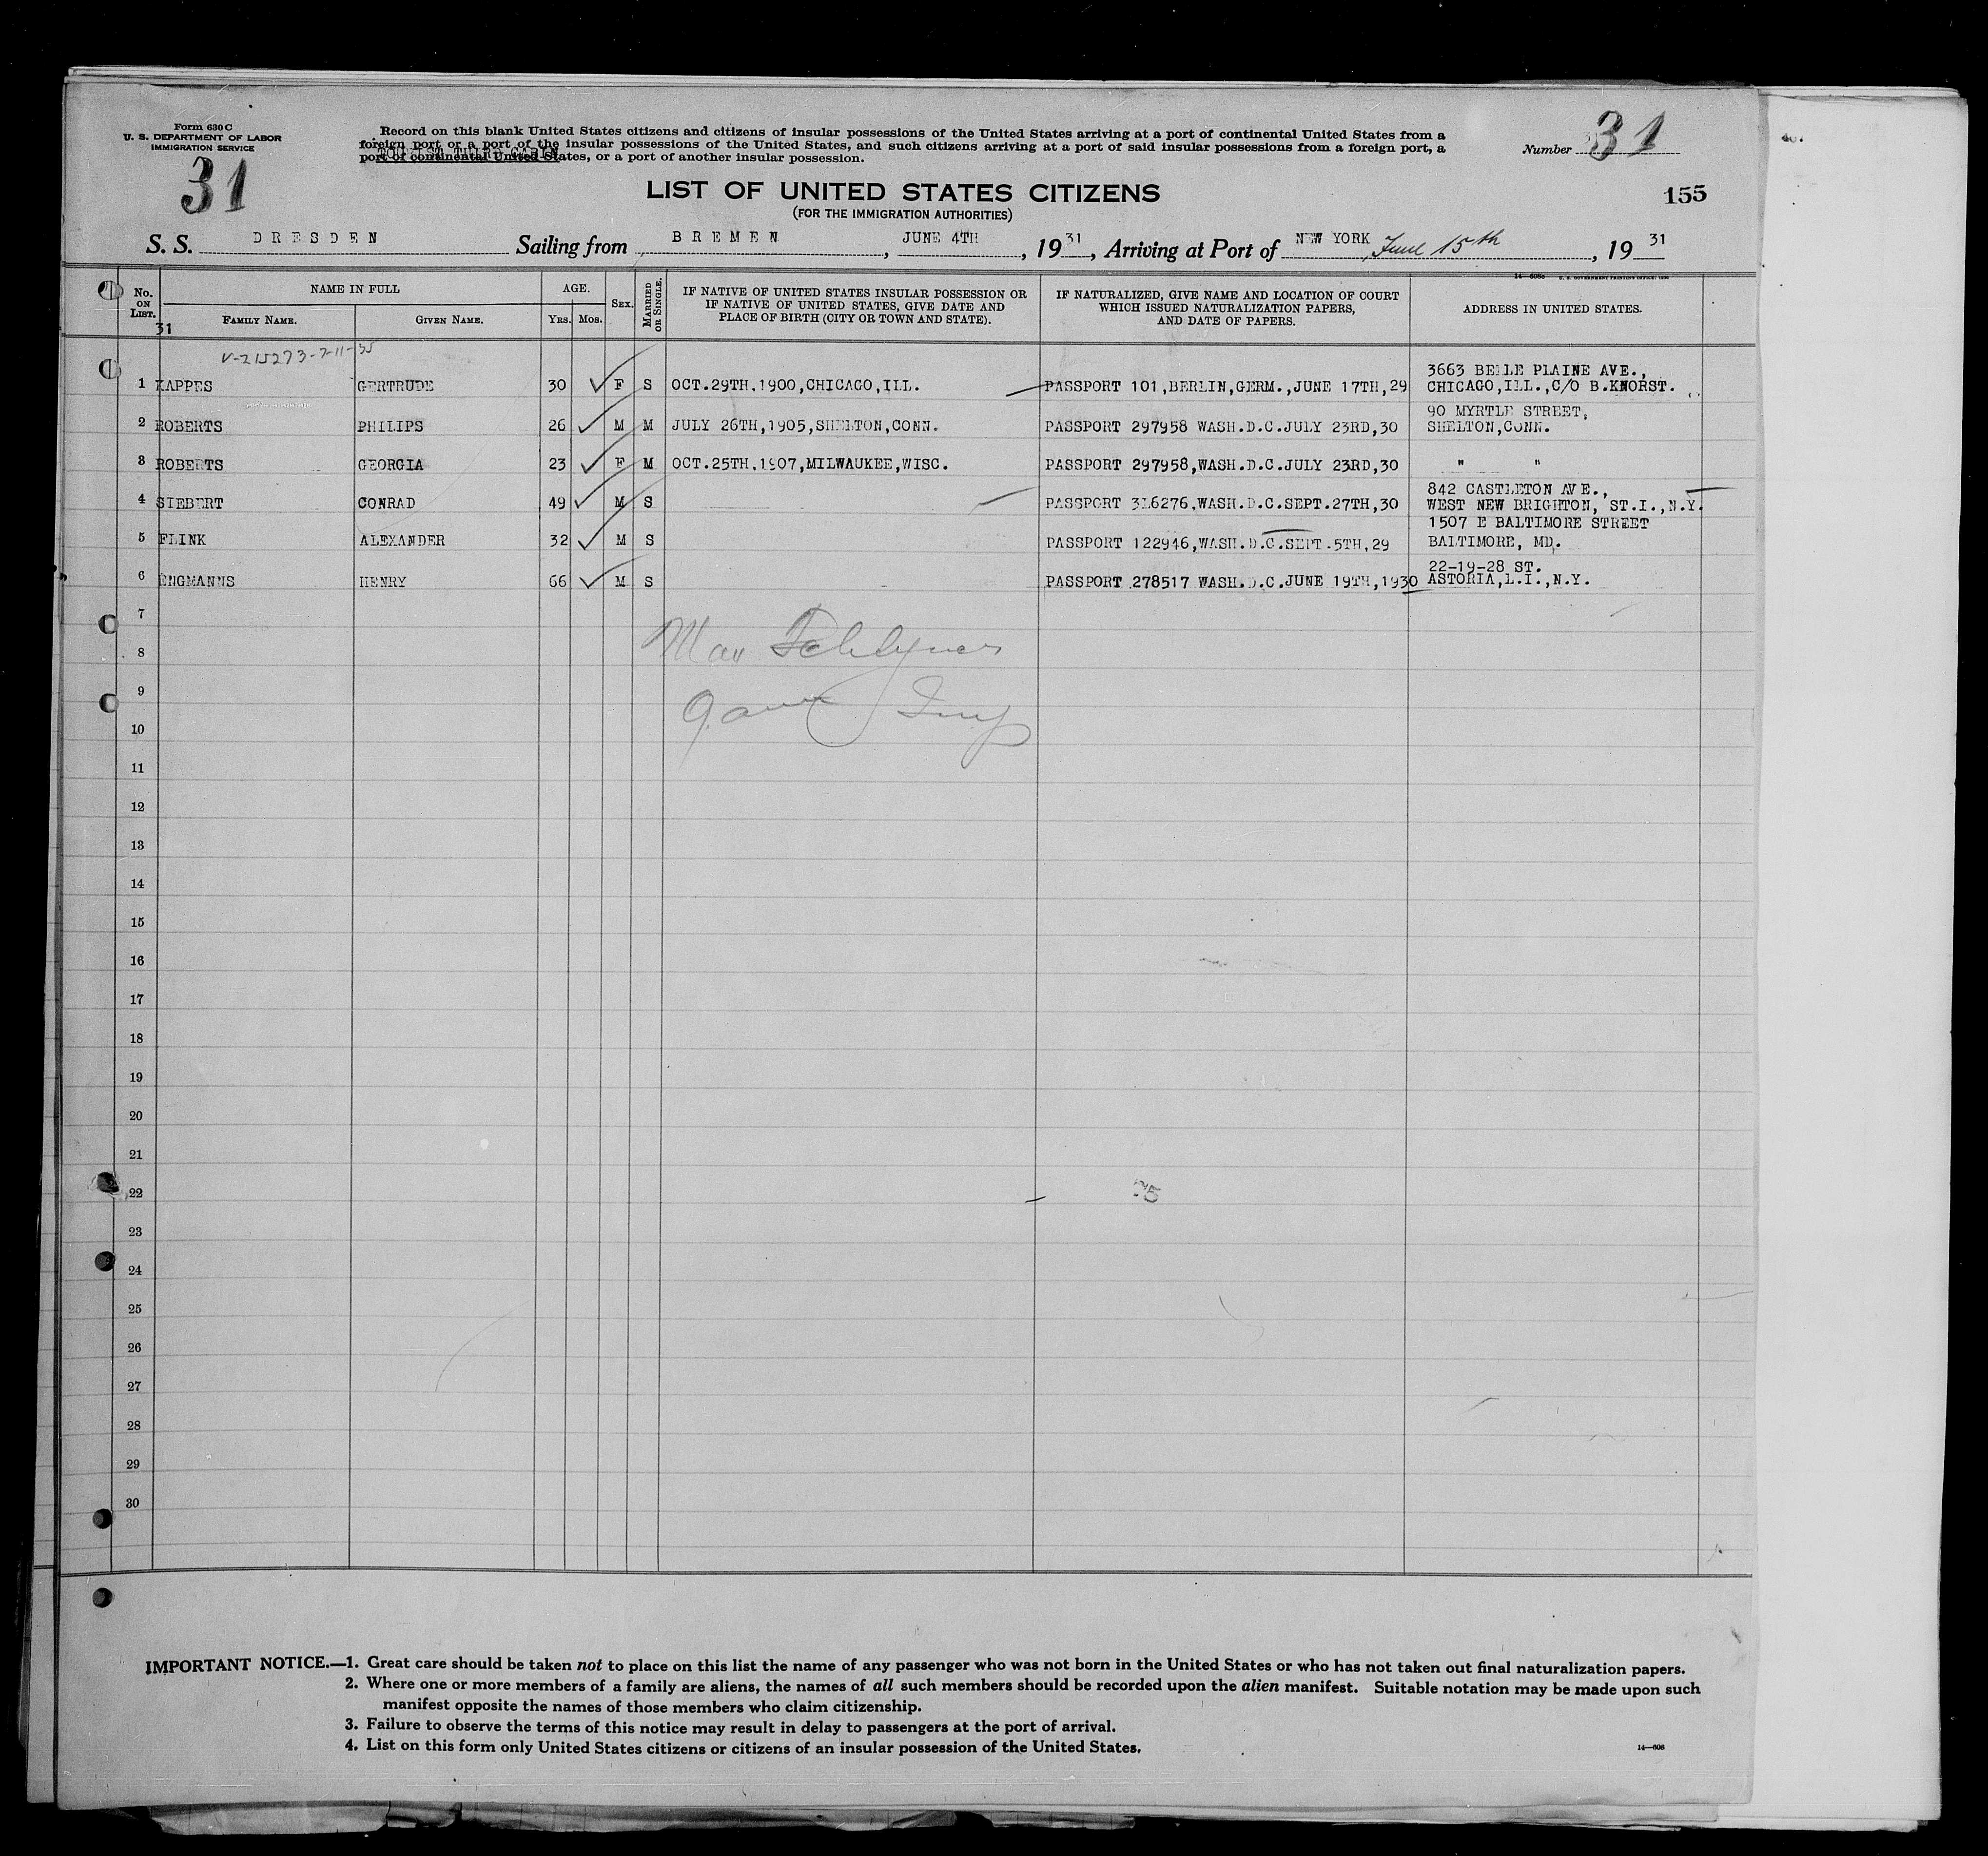 Form 630 C
U. S. DEPARTMENT OF LABOR
IMMIGRATION SERVICE
31
Record on this blank United States citizens and citizens of insular possessions of the United States arriving at a port of continental United States from a
foreign port or a port of the insular possessions of the United States, and such citizens arriving at a port of said insular possessions from a foreign port, a
port of continental United States, or a port of another insular possession.
TOURIST THIRD CABIN
Number 31
LIST OF UNITED STATES CITIZENS
(FOR THE IMMIGRATION AUTHORITIES)
155
S. S. DRESDEN Sailing from BREMEN, JUNE 4TH, 1931, Arriving at Port of NEW YORK, June 15th, 1931
No. ON LIST.
NAME IN FULL
FAMILY NAME.
GIVEN NAME.
AGE.
YRS. MOS.
SEX.
MARRIED OR SINGLE.
IF NATIVE OF UNITED STATES INSULAR POSSESSION OR
IF NATIVE OF UNITED STATES, GIVE DATE AND
PLACE OF BIRTH (CITY OR TOWN AND STATE).
IF NATURALIZED, GIVE NAME AND LOCATION OF COURT
WHICH ISSUED NATURALIZATION PAPERS,
AND DATE OF PAPERS.
ADDRESS IN UNITED STATES.
31
V-215273-7-11-35
1 KAPPES GERTRUDE 30 F S OCT.29TH,1900,CHICAGO,ILL. PASSPORT 101,BERLIN,GERM.,JUNE 17TH,29 3663 BELLE PLAINE AVE.,
CHICAGO,ILL.,C/O B.KNORST.
2 ROBERTS PHILIPS 26 M M JULY 26TH,1905,SHELTON,CONN. PASSPORT 297958 WASH.D.C.JULY 23RD,30 90 MYRTLE STREET,
SHELTON,CONN.
3 ROBERTS GEORGIA 23 F M OCT.25TH,1907,MILWAUKEE,WISC. PASSPORT 297958,WASH.D.C.JULY 23RD,30 " "
4 SIEBERT CONRAD 49 M S PASSPORT 316276,WASH.D.C.SEPT.27TH,30 842 CASTLETON AVE.,
WEST NEW BRIGHTON, ST.I.,N.Y.
5 FLINK ALEXANDER 32 M S PASSPORT 122946,WASH.D.C.SEPT.5TH,29 1507 E BALTIMORE STREET
BALTIMORE, MD.
6 ENGMANNS HENRY 66 M S PASSPORT 278517 WASH.D.C.JUNE 19TH,1930 22-19-28 ST.
ASTORIA,L.I.,N.Y.
7
8
9
10
11
12
13
14
15
16
17
18
19
20
21
22
23
24
25
26
27
28
29
30
IMPORTANT NOTICE.—1. Great care should be taken not to place on this list the name of any passenger who was not born in the United States or who has not taken out final naturalization papers.
2. Where one or more members of a family are aliens, the names of all such members should be recorded upon the alien manifest. Suitable notation may be made upon such
manifest opposite the names of those members who claim citizenship.
3. Failure to observe the terms of this notice may result in delay to passengers at the port of arrival.
4. List on this form only United States citizens or citizens of an insular possession of the United States.
14—608